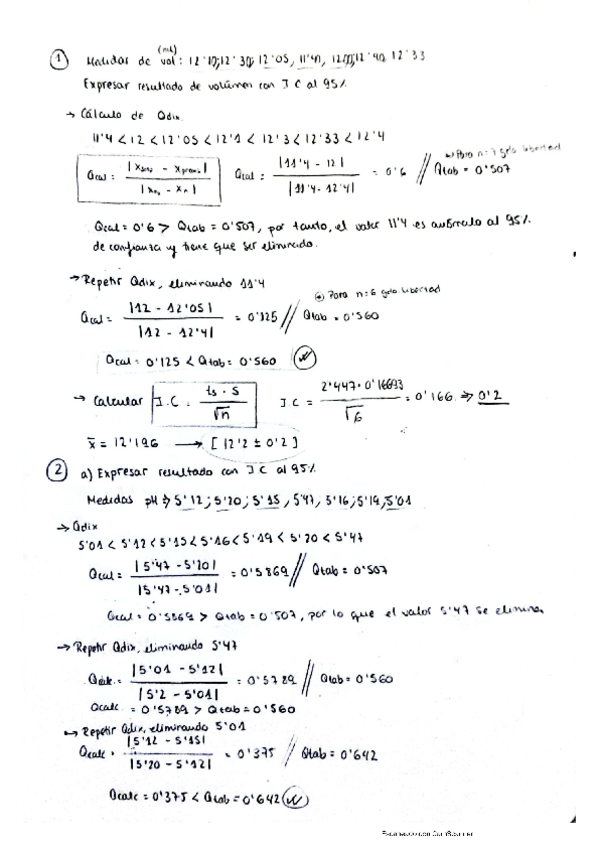 (mL)
① Medidas de vol: 12'10; 12'30; 12'05, 11'40, 12'00; 12'40, 12'33
Expresar resultado de volúmen con IC al 95%
→ Cálculo de Qdix.
11'4 < 12 < 12'05 < 12'1 < 12'3 < 12'33 < 12'4
Qcal = |Xsosp - Xproxi| / |Xn - Xn| Qcal = |11'4 - 12| / |11'4 - 12'4| = 0'6 // Para n=7 gdo libertad Qtab = 0'507
Qcal = 0'6 > Qtab = 0'507, por tanto, el valor 11'4 es anómalo al 95%
de confianza y tiene que ser eliminado.
→ Repetir Qdix, eliminando 11'4
Qcal = |12 - 12'05| / |12 - 12'4| = 0'125 // Para n=6 gdo libertad Qtab = 0'560
Qcal = 0'125 < Qtab = 0'560
→ Calcular I.C. = ts · s / √n I.C = 2'447 · 0'16693 / √6 = 0'166 ⇒ 0'2
x̄ = 12'196 → [12'2 ± 0'2]
② a) Expresar resultado con IC al 95%
Medidas pH ⇒ 5'12; 5'20; 5'15, 5'47, 5'16; 5'19, 5'01
→ Qdix
5'01 < 5'12 < 5'15 < 5'16 < 5'19 < 5'20 < 5'47
Qcal = |5'47 - 5'20| / |5'47 - 5'01| = 0'5869 // Qtab = 0'507
Qcal = 0'5869 > Qtab = 0'507, por lo que el valor 5'47 se elimina
→ Repetir Qdix, eliminando 5'47
Qcalc. = |5'01 - 5'12| / |5'2 - 5'01| = 0'5789 // Qtab = 0'560
Qcalc = 0'5789 > Qtab = 0'560
→ Repetir Qdix, eliminando 5'01
Qcalc = |5'12 - 5'15| / |5'20 - 5'12| = 0'375 // Qtab = 0'642
Qcalc = 0'375 < Qtab = 0'642
Escaneado con CamScanner